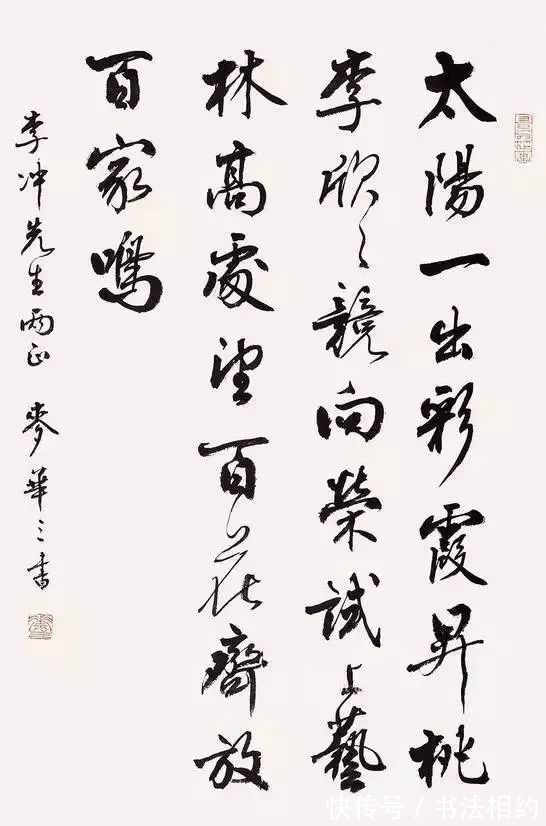 太陽一出彩霞昇桃
李欣〻競向榮試上藝
林高處望百花齊放
百家鳴
李冲先生兩正 麥華三書
快传号/书法相约